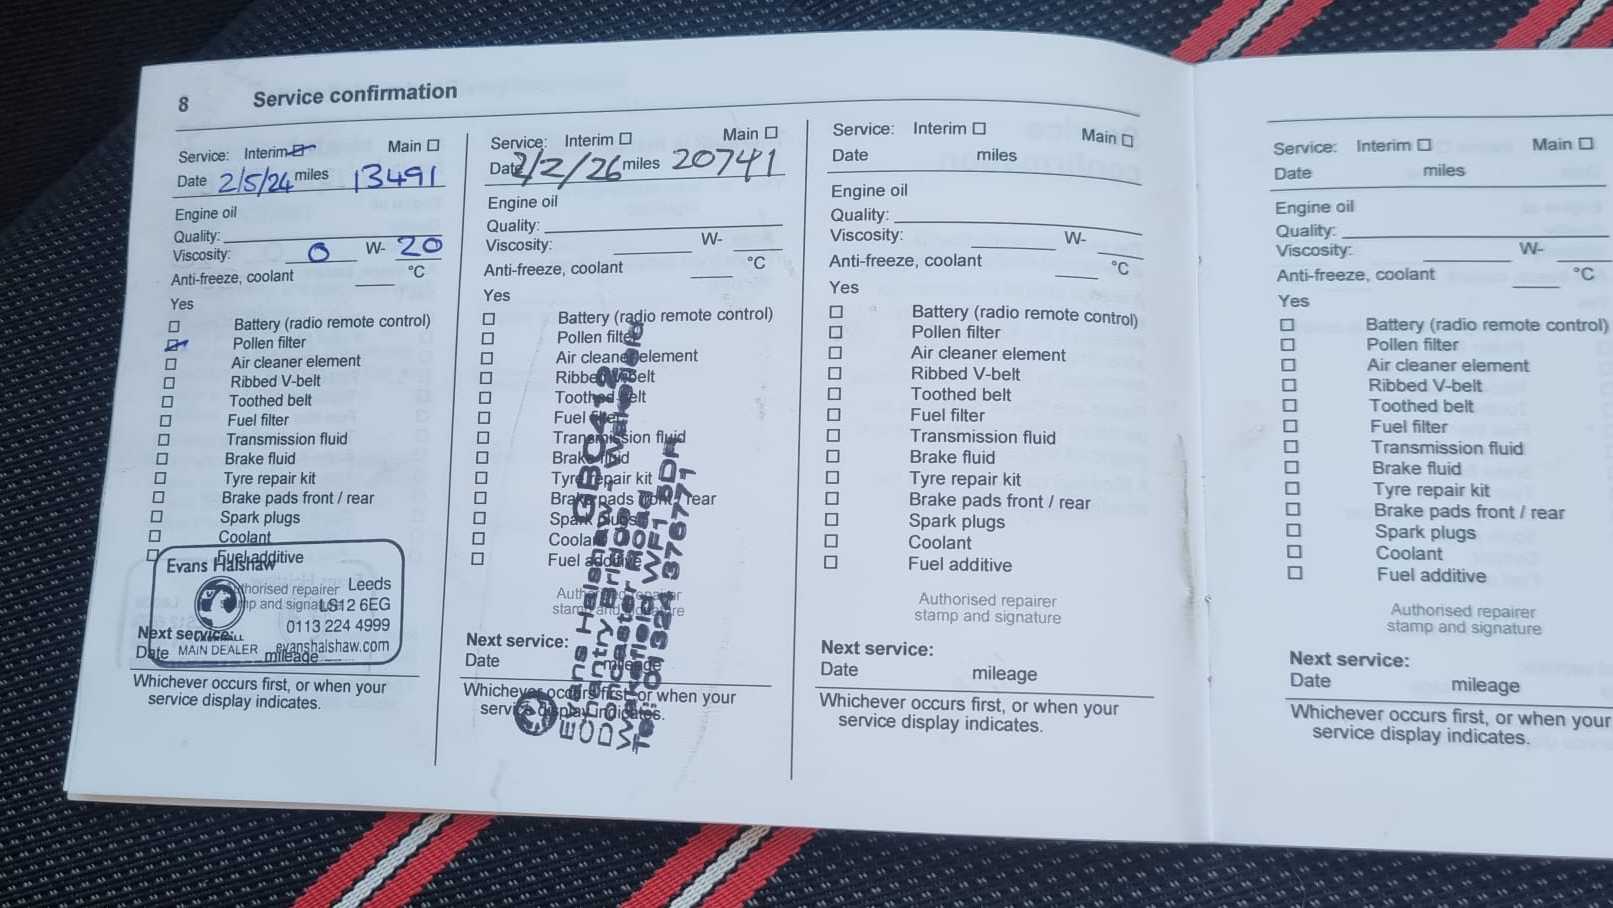 8 Service confirmation
Service: Interim Main
Date 2/5/24 miles 13491
Engine oil
Quality:
Viscosity: 0 W- 20
Anti-freeze, coolant °C
Yes
Battery (radio remote control)
Pollen filter
Air cleaner element
Ribbed V-belt
Toothed belt
Fuel filter
Transmission fluid
Brake fluid
Tyre repair kit
Brake pads front / rear
Spark plugs
Coolant
Fuel additive
Authorised repairer
stamp and signature
Evans Halshaw
Leeds
LS12 6EG
0113 224 4999
VAUXHALL
MAIN DEALER evanshalshaw.com
Next service:
Date mileage
Whichever occurs first, or when your
service display indicates.
Service: Interim Main
Date 2/2/26 miles 20741
Engine oil
Quality:
Viscosity: W-
Anti-freeze, coolant °C
Yes
Battery (radio remote control)
Pollen filter
Air cleaner element
Ribbed V-belt
Toothed belt
Fuel filter
Transmission fluid
Brake fluid
Tyre repair kit
Brake pads front / rear
Spark plugs
Coolant
Fuel additive
Authorised repairer
stamp and signature
GB0412
Evans Halshaw - Wakefield
Chantry Bridge
Doncaster Road
Wakefield WF1 5DR
Tel: 01924 376771
Next service:
Date mileage
Whichever occurs first, or when your
service display indicates.
Service: Interim Main
Date miles
Engine oil
Quality:
Viscosity: W-
Anti-freeze, coolant °C
Yes
Battery (radio remote control)
Pollen filter
Air cleaner element
Ribbed V-belt
Toothed belt
Fuel filter
Transmission fluid
Brake fluid
Tyre repair kit
Brake pads front / rear
Spark plugs
Coolant
Fuel additive
Authorised repairer
stamp and signature
Next service:
Date mileage
Whichever occurs first, or when your
service display indicates.
Service: Interim Main
Date miles
Engine oil
Quality:
Viscosity: W-
Anti-freeze, coolant °C
Yes
Battery (radio remote control)
Pollen filter
Air cleaner element
Ribbed V-belt
Toothed belt
Fuel filter
Transmission fluid
Brake fluid
Tyre repair kit
Brake pads front / rear
Spark plugs
Coolant
Fuel additive
Authorised repairer
stamp and signature
Next service:
Date mileage
Whichever occurs first, or when your
service display indicates.